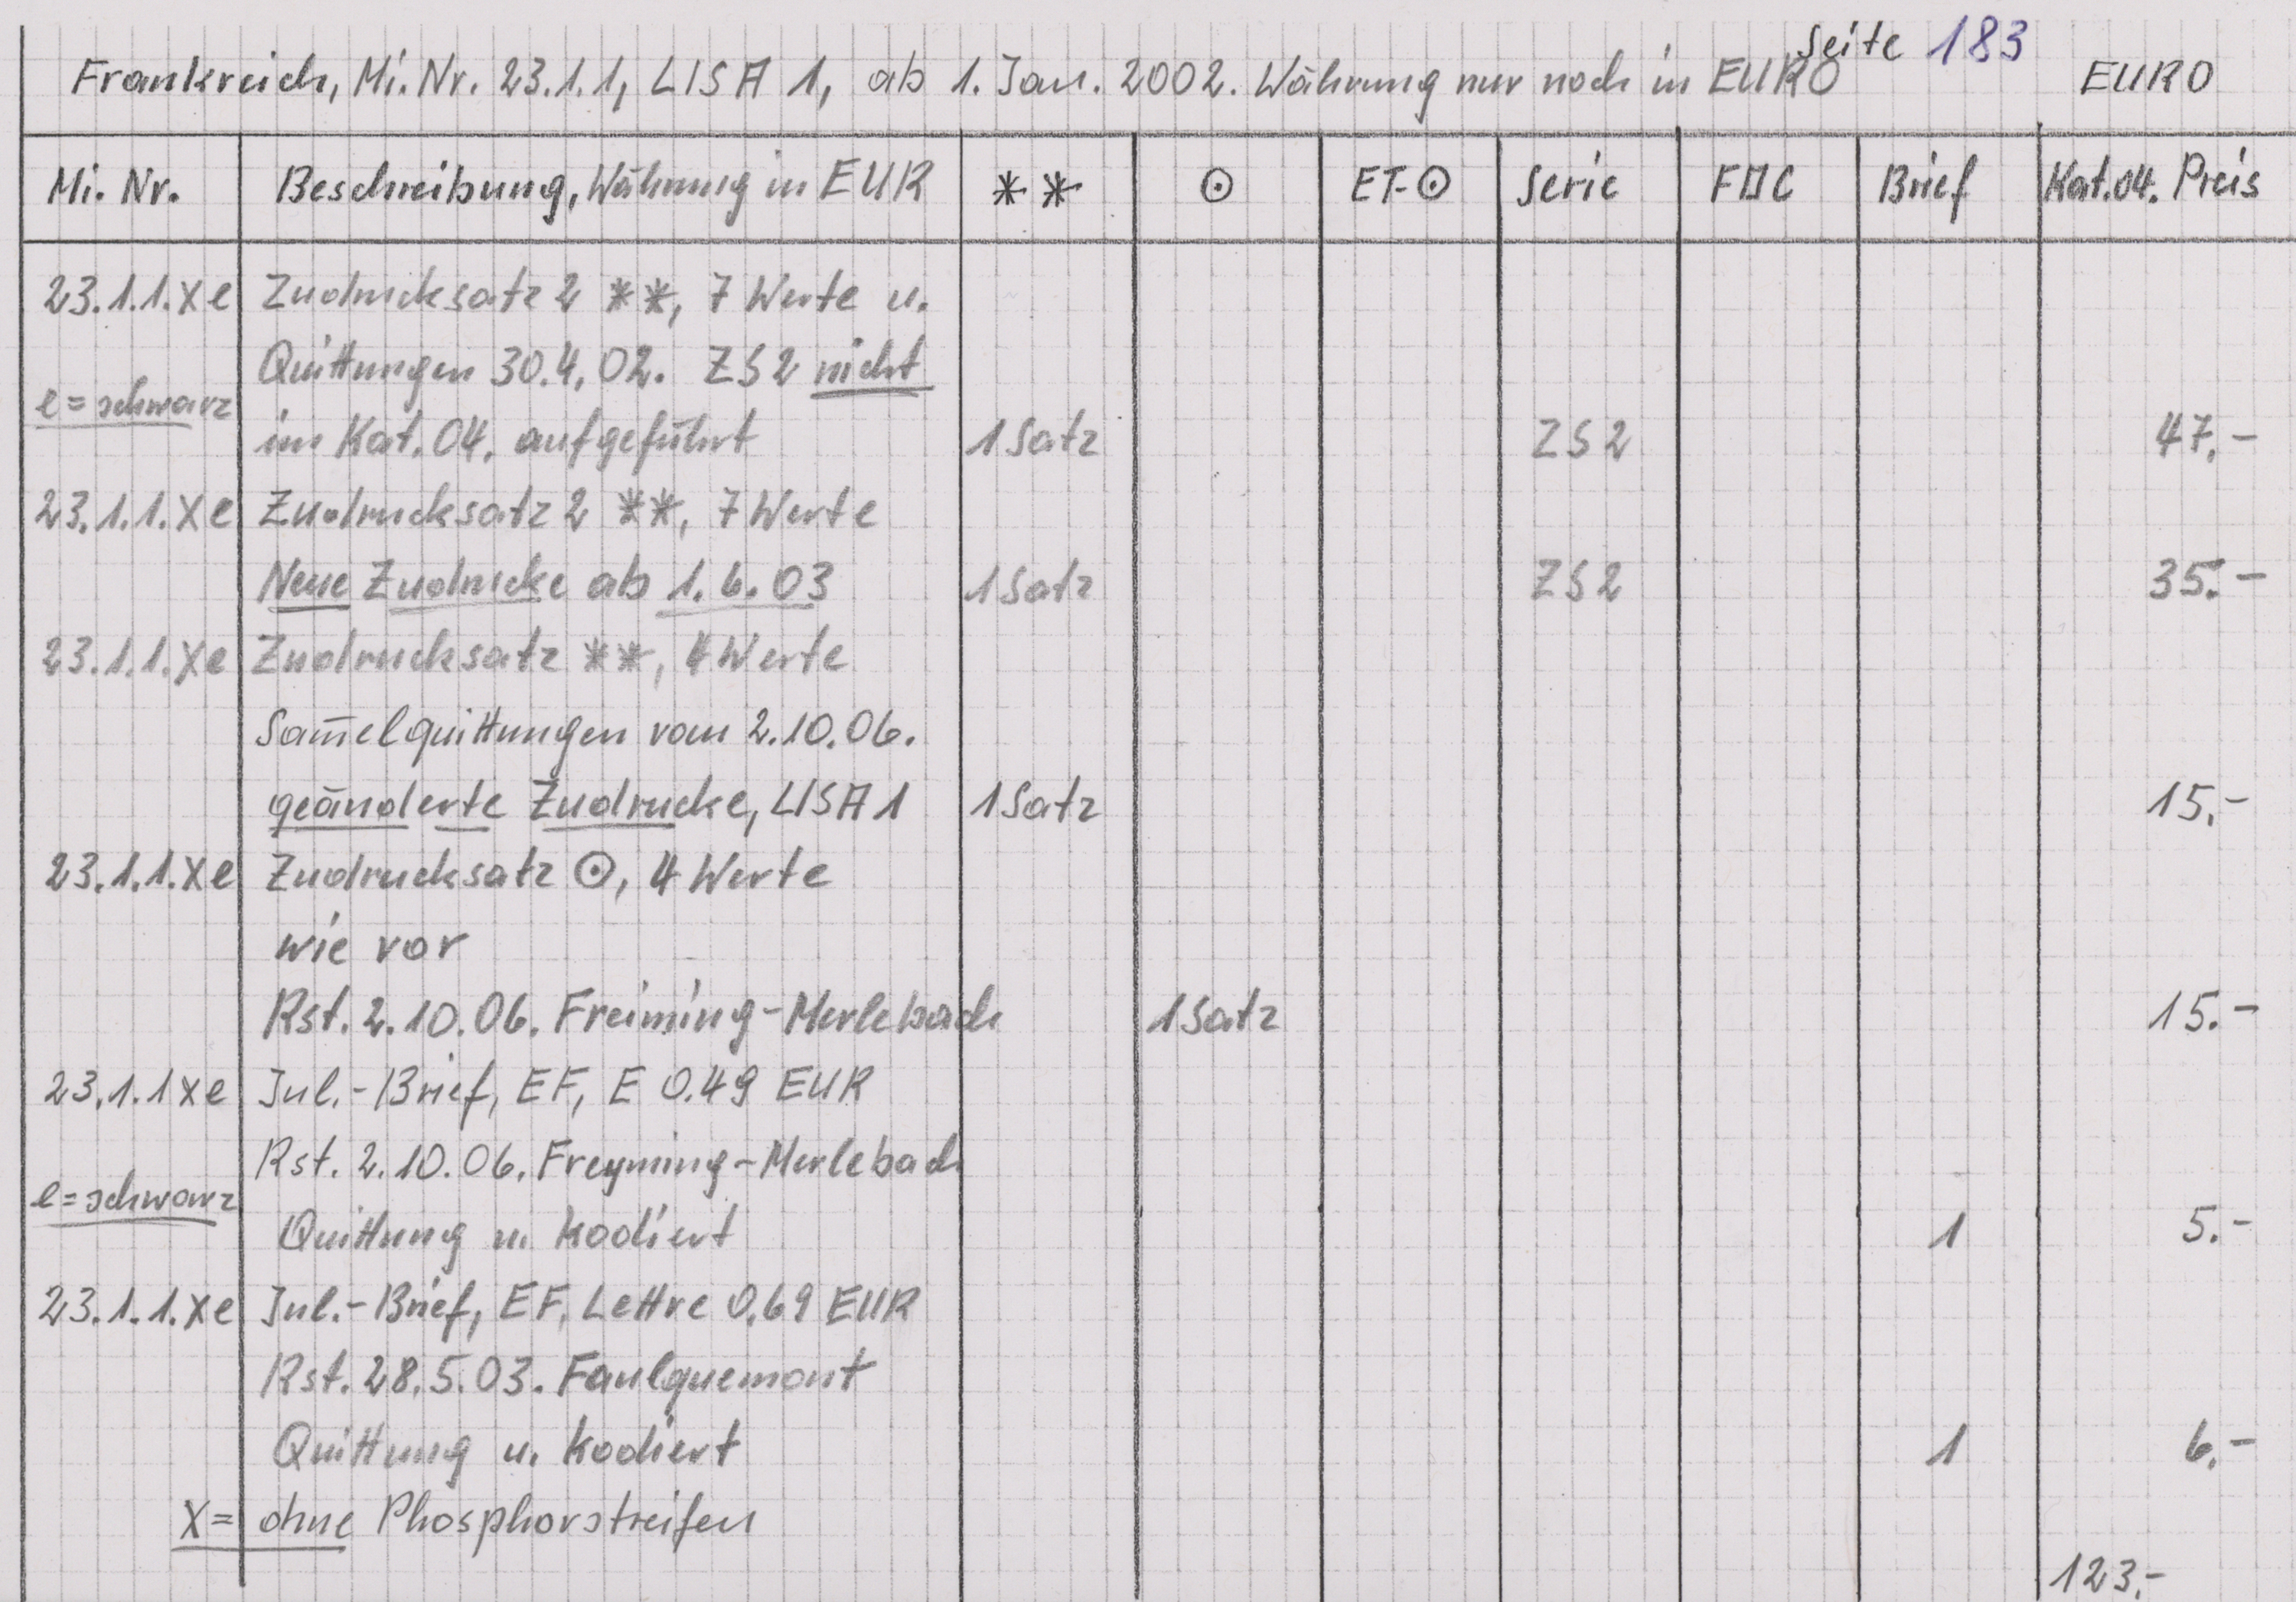 Seite 183
Frankreich, Mi.Nr. 23.1.1, LISA 1, ab 1. Jan. 2002. Währung nur noch in EURO EURO
Mi. Nr. Beschreibung, Währung in EUR ** ⊙ ET-⊙ Serie FDC Brief Kat.04. Preis
23.1.1.Xe Zudrucksatz 2 **, 7 Werte u.
Quittungen 30.4.02. ZS2 nicht
e = schwarz
im Kat.04. aufgeführt 1 Satz ZS2 47.-
23.1.1.Xe Zudrucksatz 2 **, 7 Werte
Neue Zudrucke ab 1.6.03 1 Satz ZS2 35.-
23.1.1.Xe Zudrucksatz **, 4 Werte
Sam̄elquittungen vom 2.10.06.
geänderte Zudrucke, LISA 1 1 Satz 15.-
23.1.1.Xe Zudrucksatz ⊙, 4 Werte
wie vor
Rst. 2.10.06. Freiming-Merlebach 1 Satz 15.-
23.1.1Xe Inl.-Brief, EF, E 0.49 EUR
Rst. 2.10.06. Freyming-Merlebach
e = schwarz
Quittung u. kodiert 1 5.-
23.1.1.Xe Inl.-Brief, EF, Lettre 0.69 EUR
Rst. 28.5.03. Faulquemont
Quittung u. kodiert 1 6.-
X = ohne Phosphorstreifen
123.-